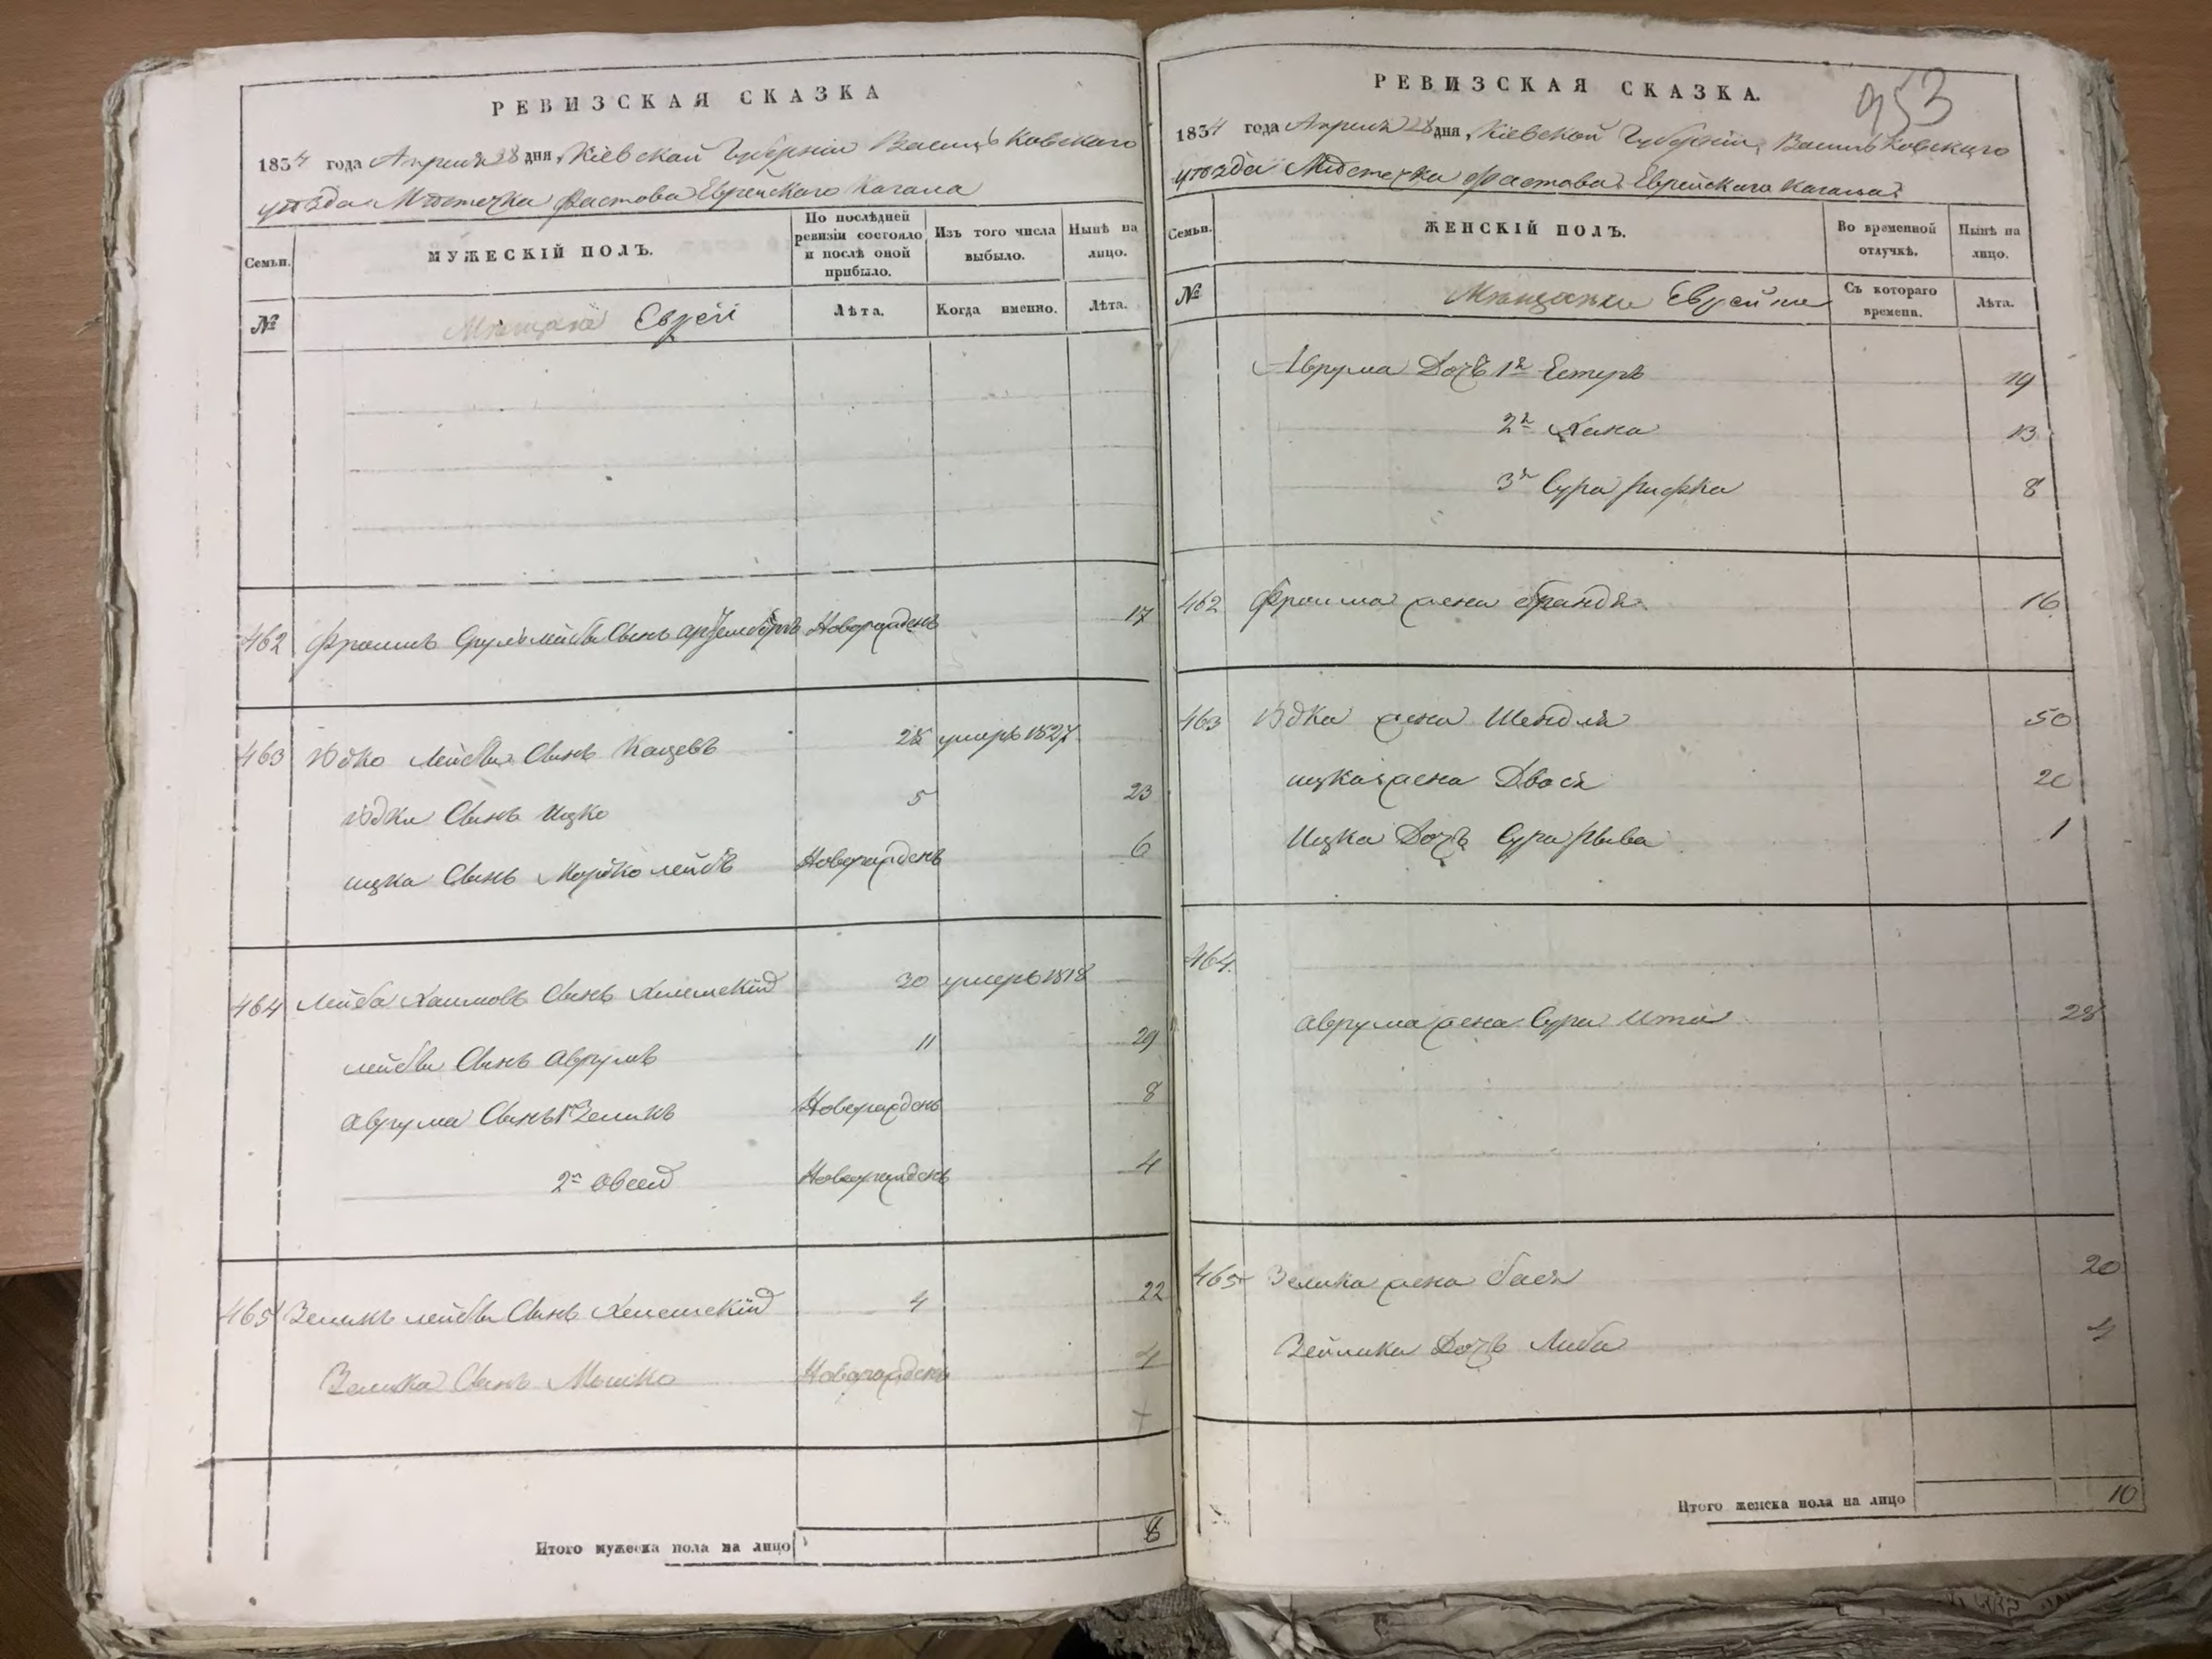 РЕВИЗСКАЯ СКАЗКА
1834 года Апреля 28 дня, Кіевской Губерніи Васильковского
уѣзда Мѣстечка Фастова Еврейского Кагала
Семьи.
МУЖЕСКІЙ ПОЛЪ.
По послѣдней ревизіи состояло и послѣ оной прибыло.
Изъ того числа выбыло.
Нынѣ на лицо.
№
Мещане Евреи
Лѣта.
Когда именно.
Лѣта.
462 Фроимъ Срульлейбы Сынъ Новорожденъ 17
463 Юдко Лейбы Сынъ Кацевъ 28 умеръ 1827
Юдки Сынъ Ицко 5 23
ицка Сынъ Мордко лейбъ Новорожденъ 6
464 Лейба Хаимовъ Сынъ 30 умеръ 1818
лейбы Сынъ Аврумъ 11 29
Аврума Сынъ 1й Зеликъ Новорожденъ 8
2й Овсей Новорожденъ 4
465 Зеликъ лейбы Сынъ 4 22
Зелика Сынъ Мошко Новорожденъ 4
Итого мужеска пола на лицо 8
953
РЕВИЗСКАЯ СКАЗКА.
1834 года Апреля 28 дня, Кіевской Губерніи, Васильковского
уѣзда Мѣстечка Фастова Еврейского Кагала
Семьи.
ЖЕНСКІЙ ПОЛЪ.
Во временной отлучкѣ.
Нынѣ на лицо.
№
Мещанки Еврейки
Съ котораго времени.
Лѣта.
Аврума Дочь 1я Естеръ 19
2я Хана 13
3я Сура рифка 8
462 Фроима жена брандя 16
463 Юдка жена Шендля 50
ицка жена Двося 20
Ицка Дочь Сура рыва 1
464
Аврума жена Сура Итя 28
465 Зелика жена бася 20
Зейлика Дочь Либа 4
Итого женска пола на лицо 10